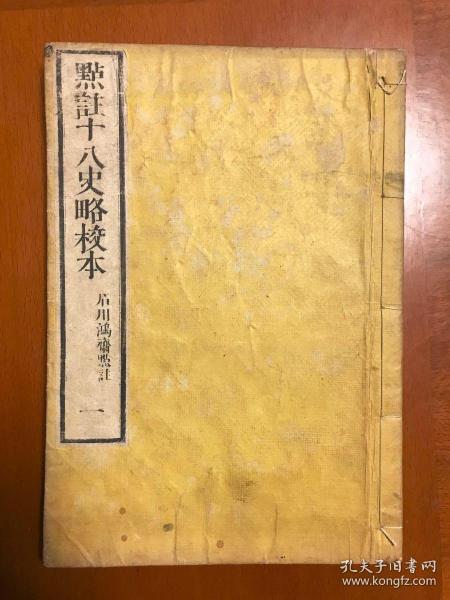 點註十八史略校本
石川鴻齋點註
一
孔夫子旧书网
www.kongfz.com